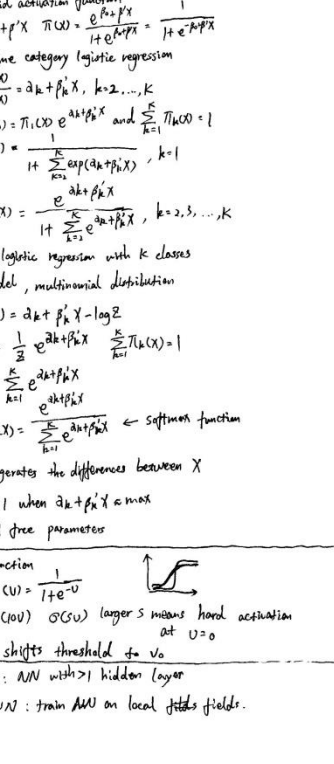 id activation function
+β'X π(X) = e^{β₀+β'X} / 1+e^{β₀+β'X} = 1 / 1+e^{-β₀-β'X}
me category logistic regression
X) / X) = αk+βk'X, k=2,...,K
) = π₁(X) e^{αk+βk'X} and Σ_{k=1}^{K} πk(X) = 1
) = 1 / 1+ Σ_{k=2}^{K} exp(αk+βk'X) , k=1
X) = e^{αk+βk'X} / 1+ Σ_{k=2}^{K} e^{αk+βk'X} , k=2,3,...,K
logistic regression with K classes
del, multinomial distribution
) = αk+βk'X-logZ
1/Z e^{αk+βk'X} Σ_{k=1}^{K} πk(X)=1
Σ_{k=1}^{K} e^{αk+βk'X}
X) = e^{αk+βk'X} / Σ_{k=1}^{K} e^{αk+βk'X} ← softmax function
gerates the differences between X
1 when αk+βk'X max
free parameters
nction
(U) = 1 / 1+e^{-U}
(10U) σ(SU) larger S means hard activation
at U=0
shifts threshold to V₀
: NN with >1 hidden layer
NN : train NN on local fields.